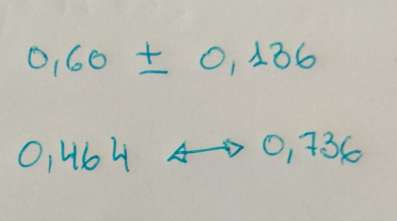 0,60 ± 0,136
0,464 ↔ 0,736